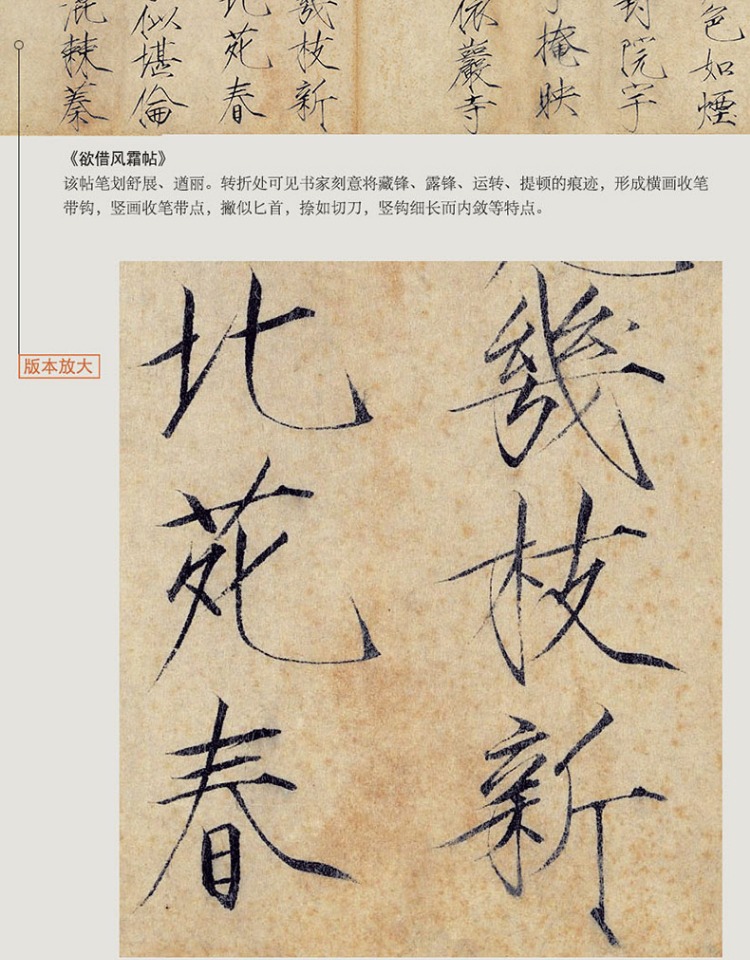 色如煙
封院宇
掩映
依巖寺
幾枝新
北苑春
似堪倫
混棘蓁
《欲借风霜帖》
该帖笔划舒展、遒丽。转折处可见书家刻意将藏锋、露锋、运转、提顿的痕迹，形成横画收笔
带钩，竖画收笔带点，撇似匕首，捺如切刀，竖钩细长而内敛等特点。
版本放大
幾枝新
北苑春